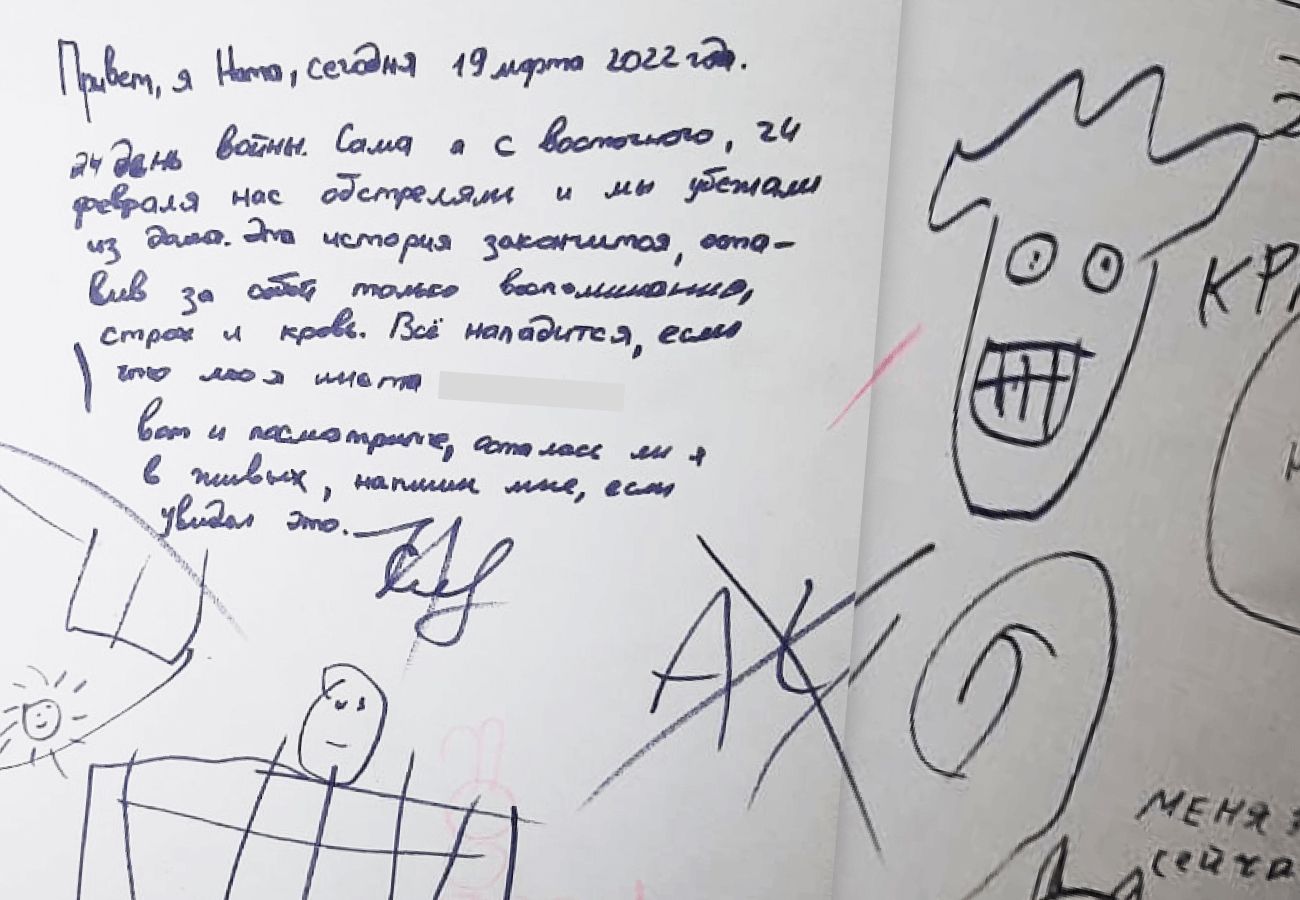 Привет, я Ната, сегодня 19 марта 2022 года.
24 день войны. Сама я с Восточного, 24
февраля нас обстреляли и мы убежали
из дома. Эта история закончится, оста-
вив за собой только воспоминания,
страх и кровь. Всё наладится, если
что моя инста
вот и посмотрите, осталась ли я
в живых, напиши мне, если
увидел это.
КР
АУ
МЕНЯ
сейча